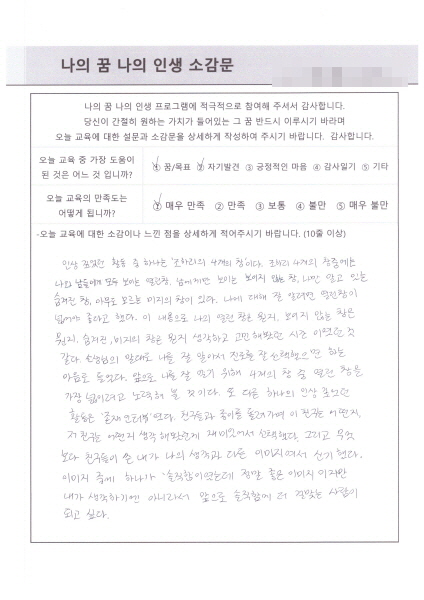 나의 꿈 나의 인생 소감문
나의 꿈 나의 인생 프로그램에 적극적으로 참여해 주셔서 감사합니다.
당신이 간절히 원하는 가치가 들어있는 그 꿈 반드시 이루시기 바라며
오늘 교육에 대한 설문과 소감문을 상세하게 작성하여 주시기 바랍니다. 감사합니다.
오늘 교육 중 가장 도움이
된 것은 어느 것 입니까?
① 꿈/목표 ② 자기발견 ③ 긍정적인 마음 ④ 감사일기 ⑤ 기타
오늘 교육의 만족도는
어떻게 됩니까?
① 매우 만족 ② 만족 ③ 보통 ④ 불만 ⑤ 매우 불만
-오늘 교육에 대한 소감이나 느낀 점을 상세하게 적어주시기 바랍니다. (10줄 이상)
인상 깊었던 활동 중 하나는 '조하리의 4개의 창'이다. 조하리 4개의 창중에는
나와 남들에게 모두 보이는 열린창, 남에게만 보이는 보이지 않는 창, 나만 알고 있는
숨겨진 창, 아무도 모르는 미지의 창이 있다. 나에 대해 잘 알려면 열린창이
넓어야 좋다고 했다. 이 내용으로 나의 열린 창은 뭔지, 보이지 않는 창은
뭔지, 숨겨진, 미지의 창은 뭔지 생각하고 고민해봤던 시간 이었던 것
같다. 선생님의 말대로 나를 잘 알아서 진로를 잘 선택했으면 하는
마음도 들었다. 앞으로 나를 잘 알기 위해 4개의 창 중 열린 창을
가장 넓히려고 노력해 볼 것이다. 또 다른 하나의 인상 깊었던
활동은 였다. 친구들과 종이를 돌려가며 이 친구는 어떤지,
저 친구는 어떤지 생각해봤는게 재미있어서 선택했다. 그리고 무엇
보다 친구들이 쓴 내가 나의 생각과 다른 이미지여서 신기했다.
이미지 중에 하나가 '솔직함'이였는데 정말 좋은 이미지 이지만
내가 생각하기엔 아니라서 앞으로 솔직함에 더 걸맞는 사람이
되고 싶다.